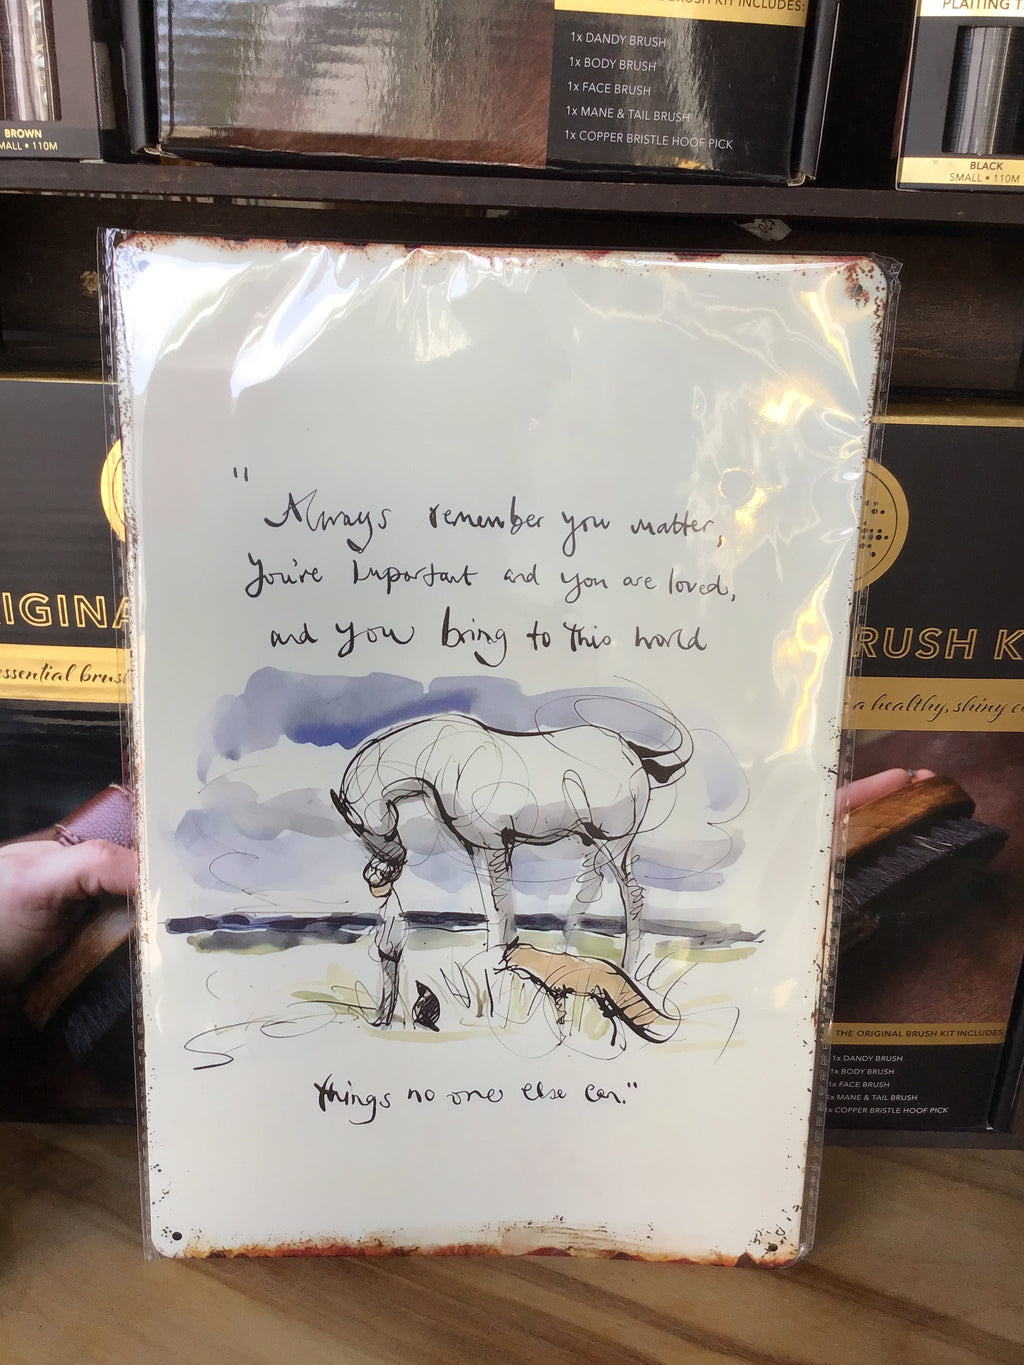 BRUSH KIT INCLUDES:
1x DANDY BRUSH
1x BODY BRUSH
1x FACE BRUSH
1x MANE & TAIL BRUSH
1x COPPER BRISTLE HOOF PICK
BROWN
MALL • 110M
PLAITING T
BLACK
SMALL • 110M
"Always remember you matter,
You're Important and you are loved,
and you bring to this world
things no one else can."
IGINA
essential brus
RUSH K
a healthy, shiny c
THE ORIGINAL BRUSH KIT INCLUDES:
1x DANDY BRUSH
1x BODY BRUSH
1x FACE BRUSH
1x MANE & TAIL BRUSH
1x COPPER BRISTLE HOOF PICK